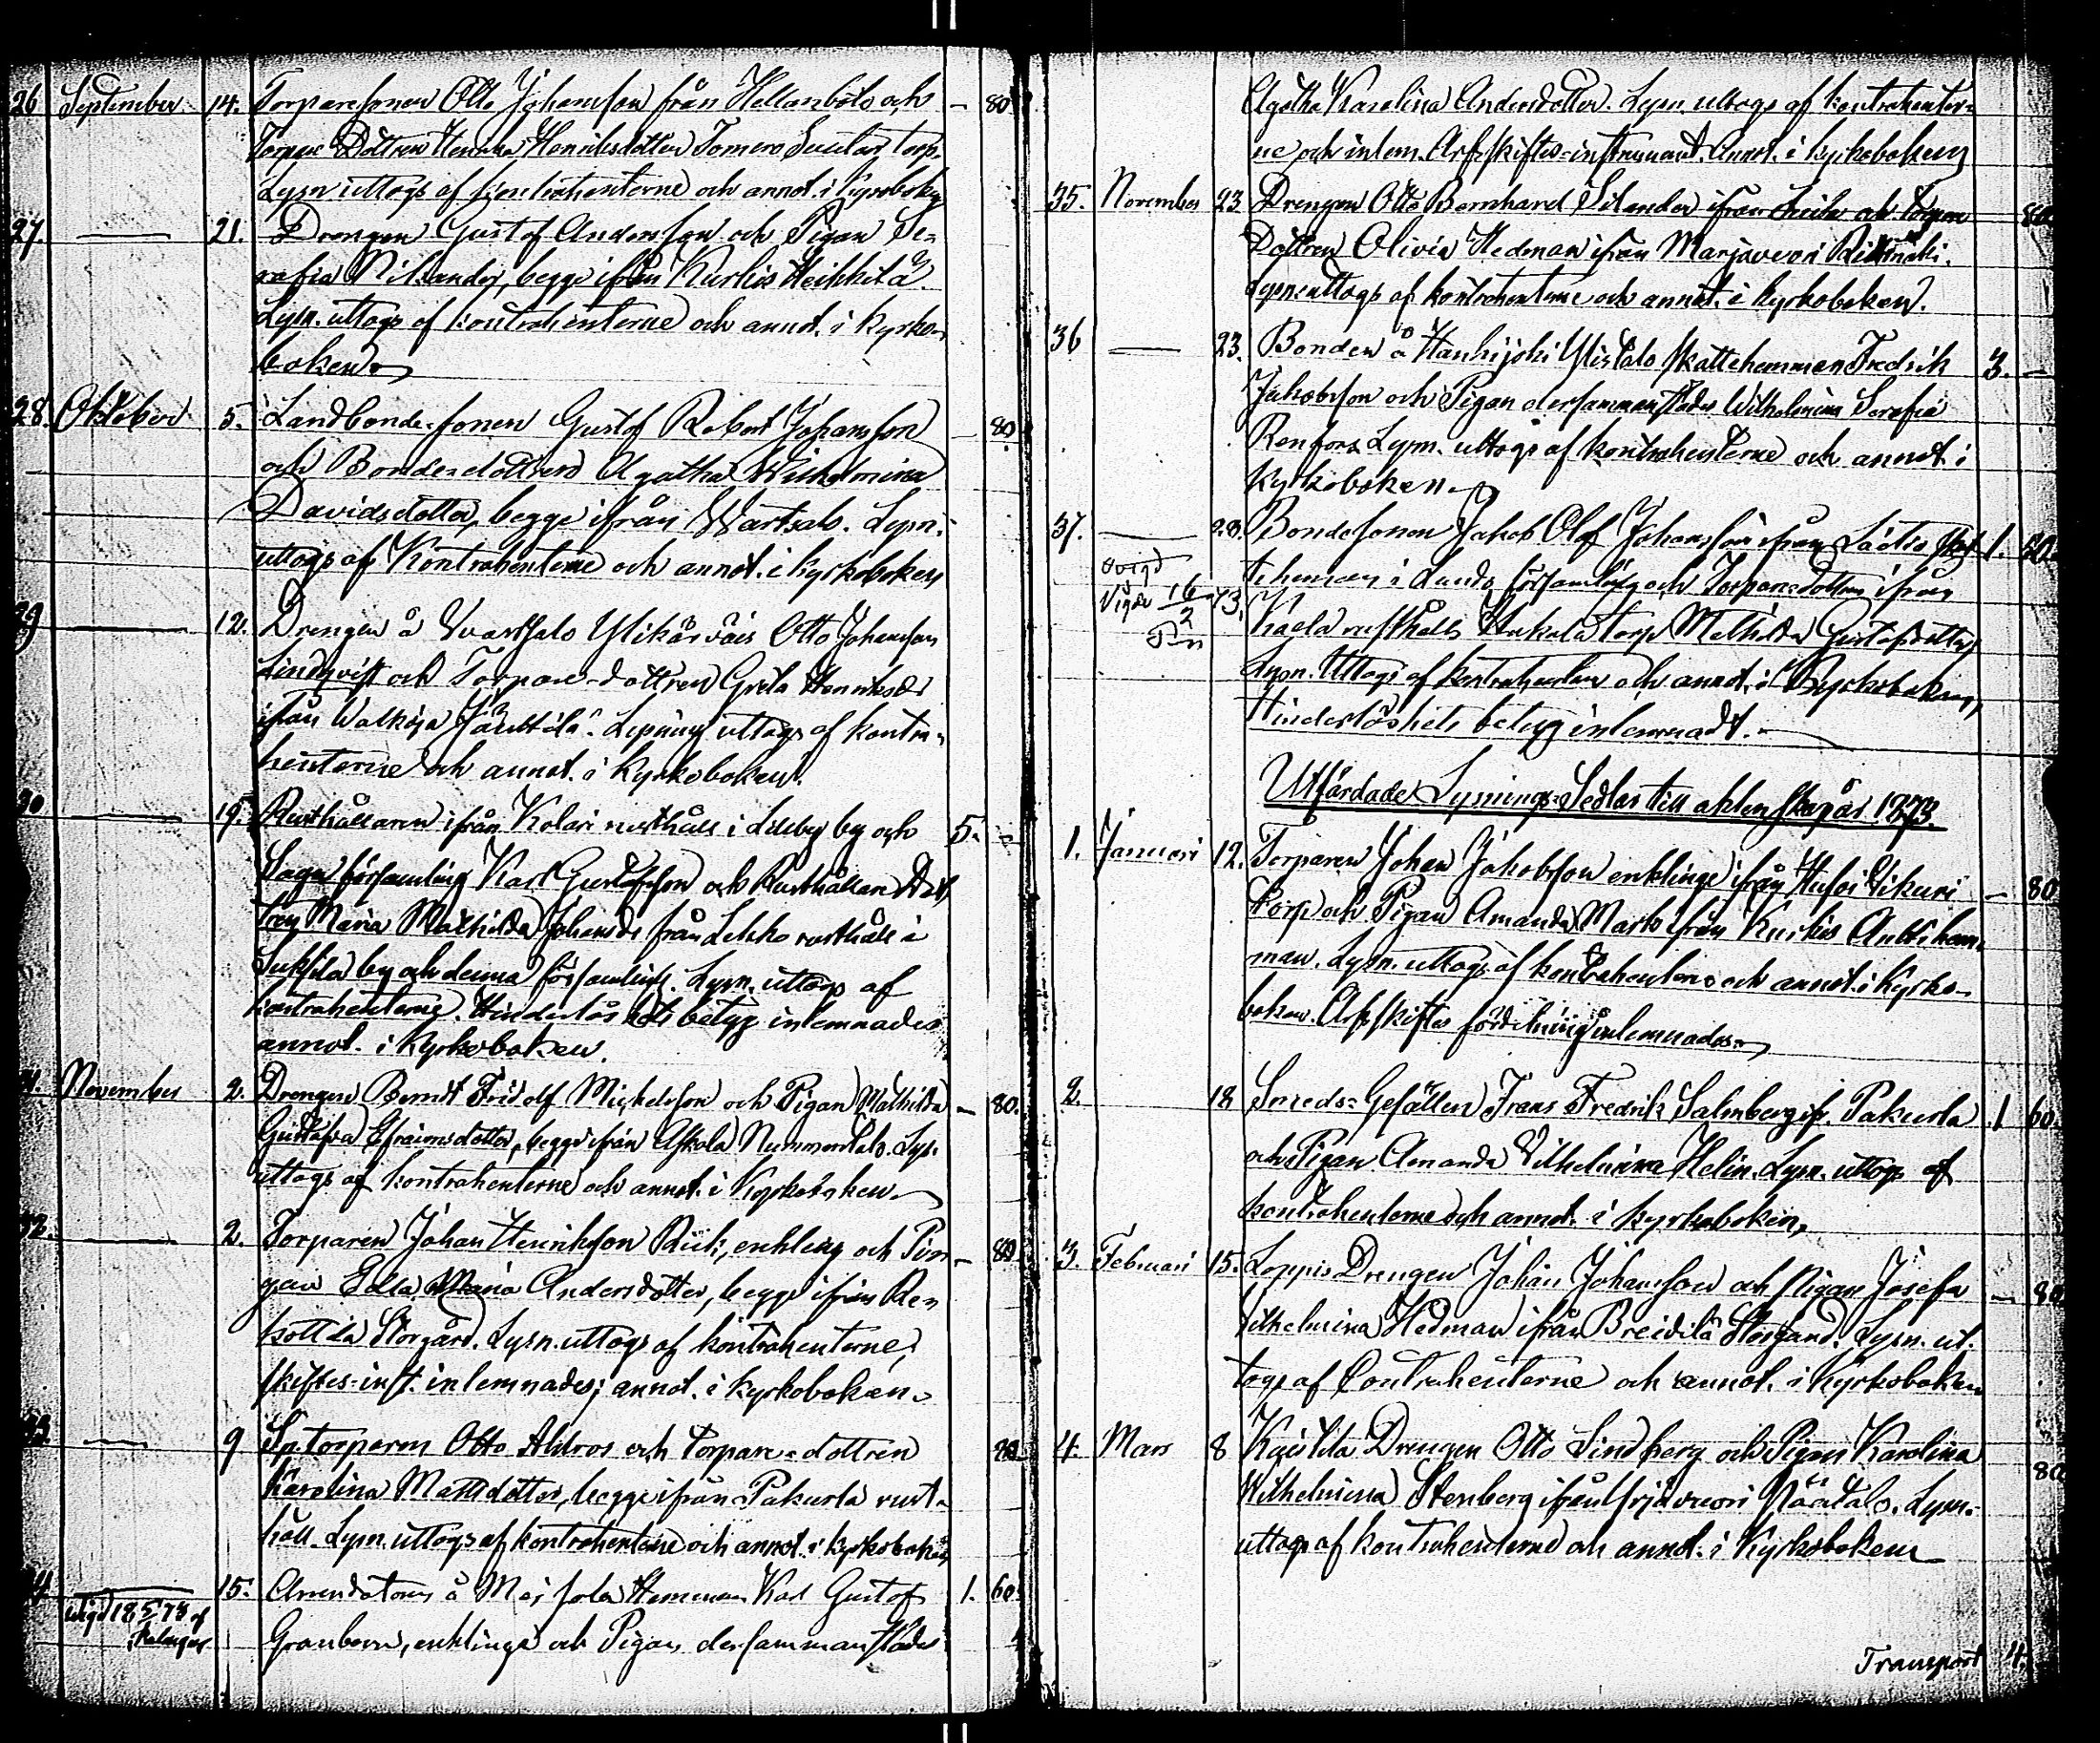 26 September 14. Torparesonen Otto Johansson från Hellansböle och — 80.
Torpare Dottren Henrika Henriksdotter torp.
Lysn. uttogs af kontrahenterne och annot. i Kyrkobokn
27. — 21. Drengen Gustaf Andersson och Pigan Se-
rafia begge ifrån Kurkis Heikkilä
Lysn. uttogs af kontrahenterne och annot. i kyrko-
boken
28. Oktober 5. Landbonde-sonen Gustaf Robert Johansson — 80.
och Bonde-dottren Agatha Wilhelmina
Davidsdotter, begge ifrån Wartsalo. Lysn.
uttogs af Kontrahenterne och annot. i kyrkoboken
29 — 12. Drengen å Vartsalo Ylikärväis Otto Johansson
Lindqvist och Torpare-dottren Greta Henriksdr
ifrån Walkoja Jänttilä. Lysning uttogs af kontra-
henterne och annot. i Kyrkoboken.
30 — 19. Rusthållaren ifrån Kolari rusthåll i by och 5. —
Sagu församling Karl Gustafsson och Rusthållare Dot-
tren Maria Mathilda Johansdr från Lekko rusthåll i
by och denna församling. Lysn. uttogs af
kontrahenterne. Hinderlöshets betyg inlemnades
annot. i Kyrkoboken.
31. November 2. Drengen Berndt Fridolf Mickelsson och Pigan Mathilda — 80.
Gustafva Efraimsdotter, begge ifrån Askala Nummentalo. Lysn.
uttogs af kontrahenterne och annot. i Kyrkoboken
32. — 2. Torparen Johan Henriksson Riik, enkling och Pi- — 80.
gan Edla Maria Andersdotter, begge ifrån Re-
kottila Storgård. Lysn. uttogs af kontrahenterne,
skiftes-inst. inlemnades; annot. i kyrkoboken.
33. — 9 Sp. torparen Otto Ahlros och torpare-dottren 80.
Karolina Mattsdotter, begge ifrån Pakurla rust-
håll. Lysn. uttogs af kontrahenterne och annot. i kyrkoboken
34 — 15. Arrendatorn å Hemman Karl Gustaf 1. 60.
Wigd 18 5/1 73 af
Granberg, enkling och Pigan dersammanstädes
Agatha Karolina Andersdotter. Lysn. uttogs af kontrahenter-
ne och inlem. Arfskiftes-instrument. Annot. i kyrkoboken
35. November 23 Drengen Otto Bernhard Silander ifrån och torpare 80.
Dottren Olivia Hedman ifrån Marjavuori
Lysn. uttogs af kontrahenterne och annot. i kyrkoboken.
36 — 23. Bonden å Hanhijoki Ylistalo skattehemman Fredrik 3. —
Jakobsson och Pigan dersammanstädes Wilhelmina Serafia
Renfors. Lysn. uttogs af kontrahenterne och annot. i
kyrkoboken.
37. — 23. Bondesonen Jakob Olof Johansson ifrån 1. 60.
Vigde 16/2 73. tehemman i Lundo församling och Torpare-dottren ifrån
rusthålls Hukola torp Mathilda Gustafsdotter
Lysn. Uttogs af kontrahenterne och annot. i Kyrkoboken,
Hinderlöshets betyg inlemnadt.
Utfärdade Lysnings-Sedlar till aktenskap år 1873.
1. Januari 12. Torparen Johan Jakobsson enkling ifrån — 80.
torp och Pigan Amanda ifrån Kurkis Antti hem-
man. Lysn. uttogs af kontrahenterne och annot. i Kyrko-
boken. Arfskiftes inlemnades.
2. 18 Smeds-Gesällen Frans Fredrik Salmberg ifr. Pakurla 1 60.
och Pigan Amanda Vilhelmina Helin. Lysn. uttogs af
kontrahenterne och annot. i kyrkoboken,
3. Februari 15. Loppis Drengen Johan Johansson och Pigan Josefa — 80
Vilhelmina Hedman ifrån Breidilä Storgård. Lysn. ut-
togs af Contrahenterne och annot. i Kyrkoboken
4. Mars 8 Drengen Otto Lindberg och Pigan Karolina 80
Wilhelmina Stenberg ifrån Lysn.
uttogs af kontrahenterne och annot. i Kyrkoboken
Transport 4.